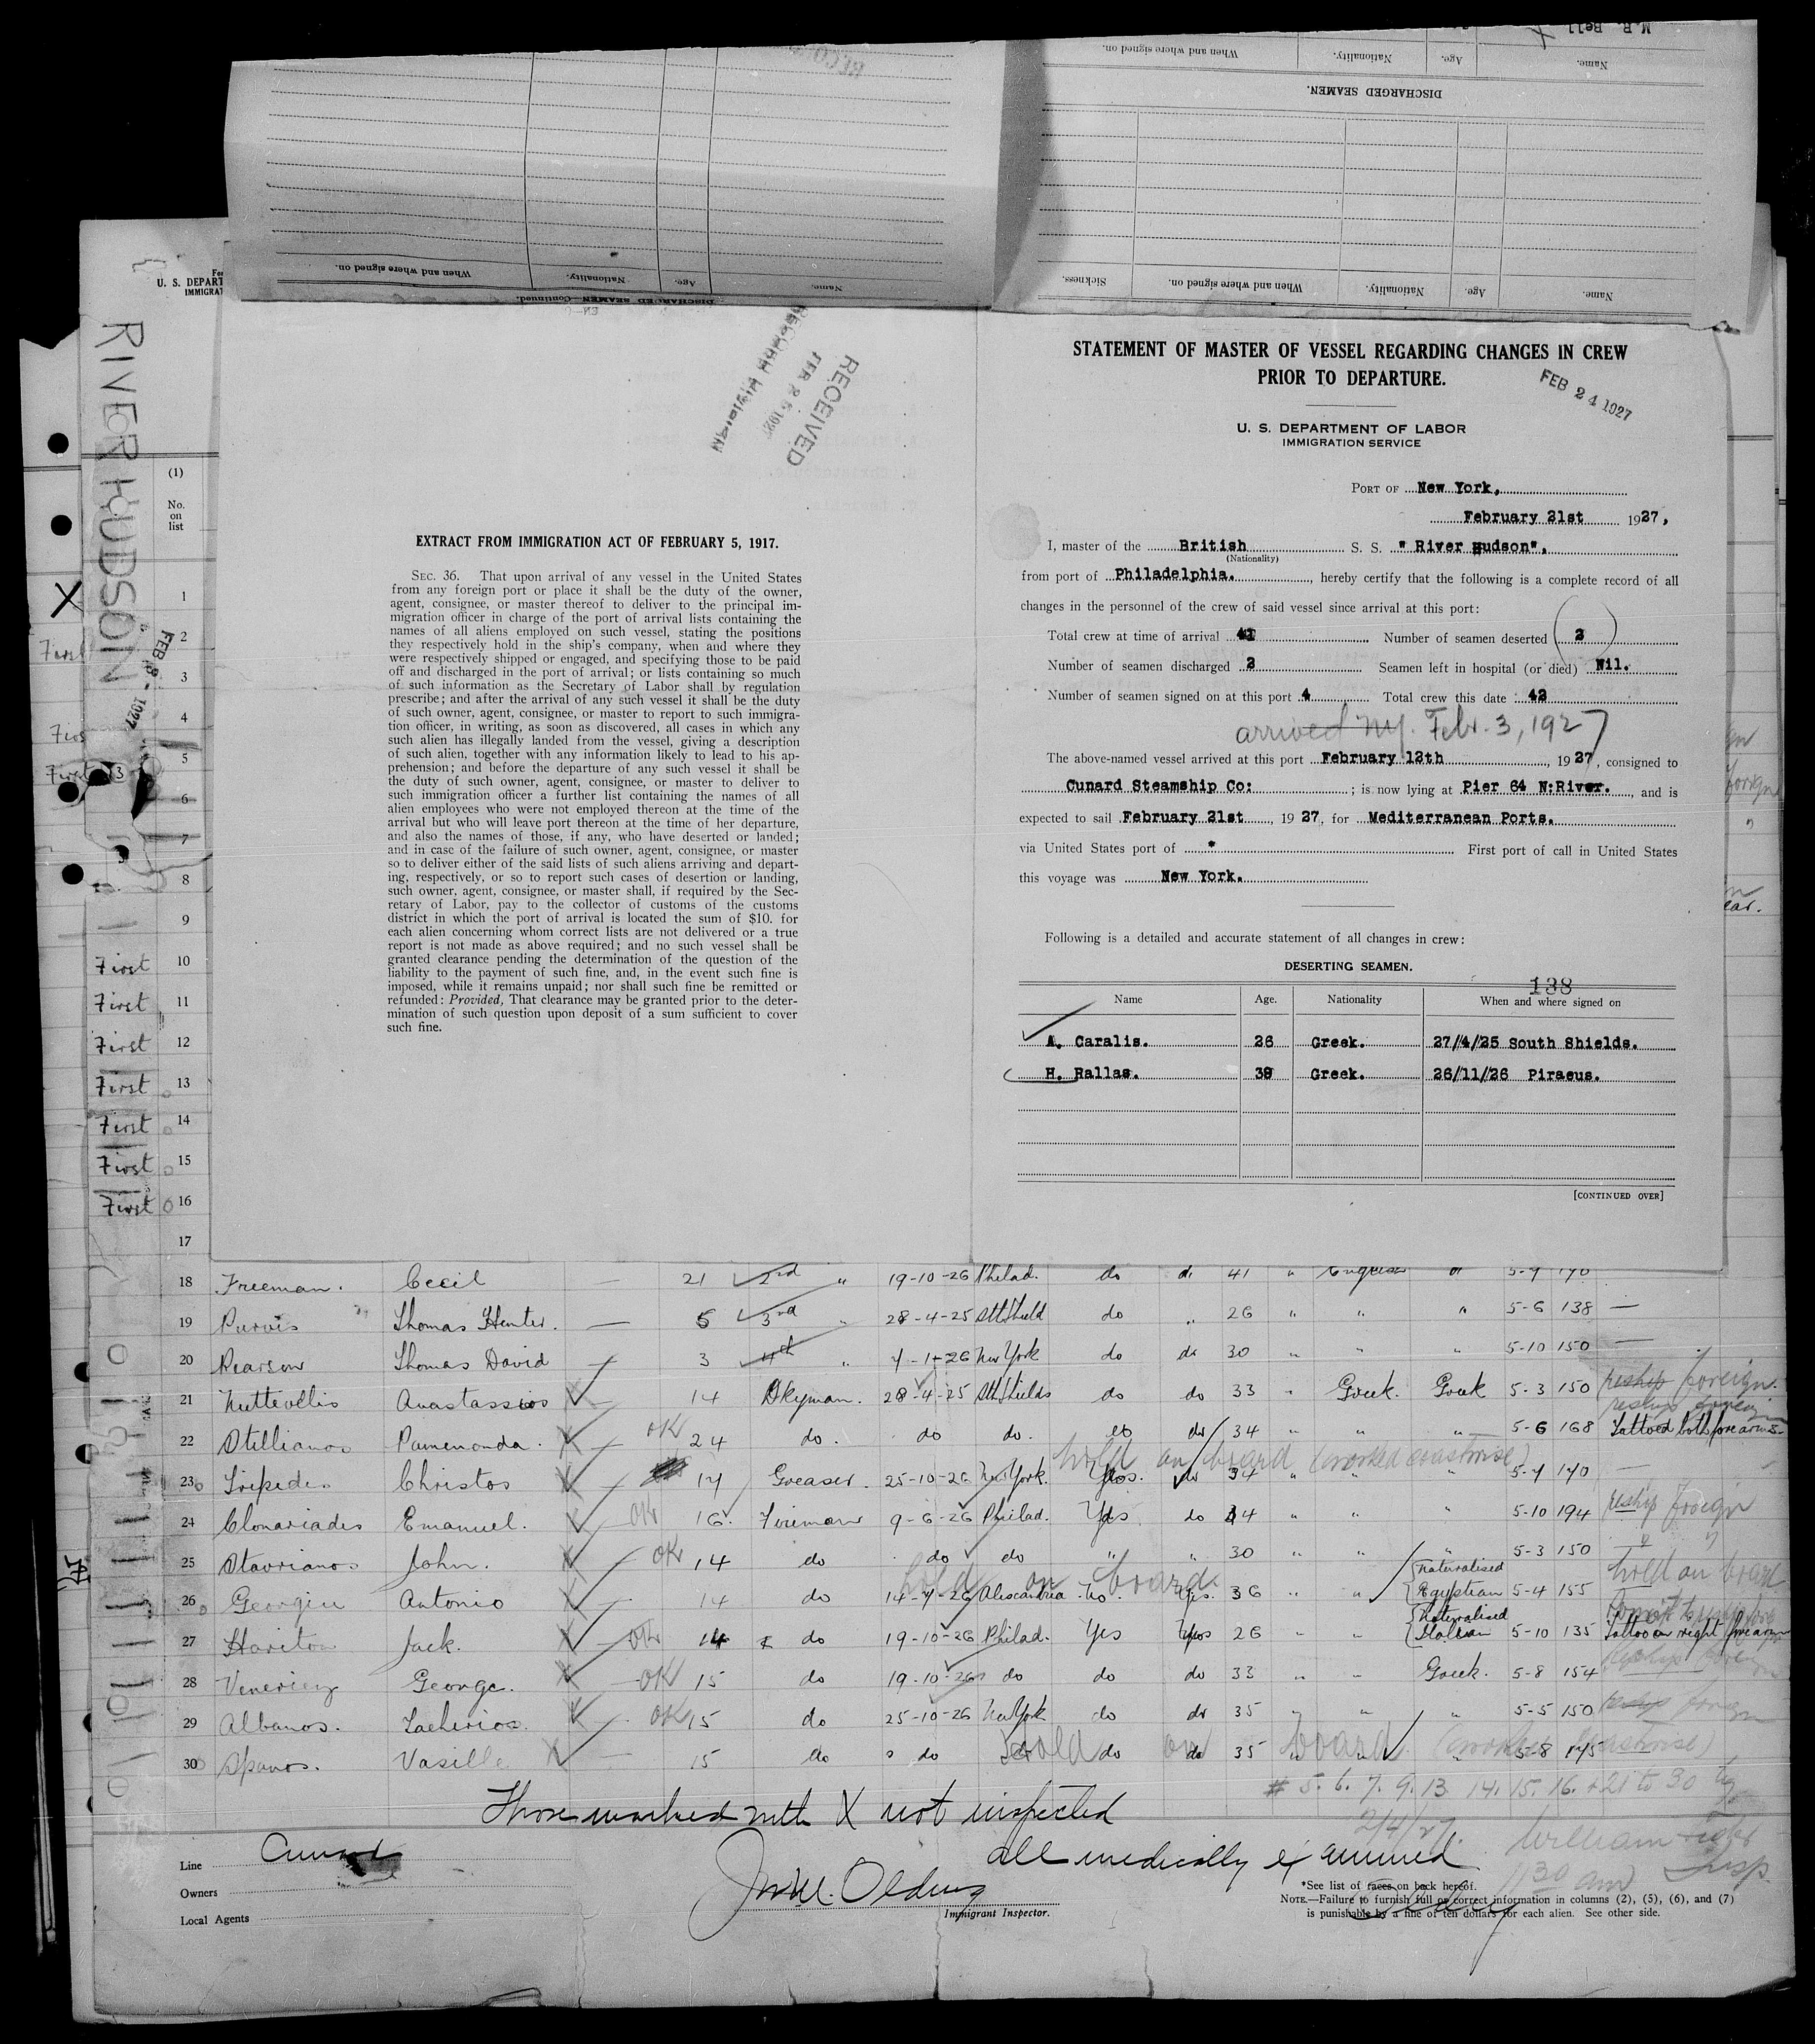 M.R. Bell
When and where signed on.
Nationality.
Age.
Name.
DISCHARGED SEAMEN.
When and where signed on.
Nationality.
Age.
Name.
DISCHARGED SEAMEN—Continued.
Sickness.
When and where signed on.
Nationality.
Age.
Name.
U. S. DEPART
IMMIGRAT
RIVER HUDSON
FEB 8 - 1927
RECEIVED
FEB 25 1927
STATEMENT OF MASTER OF VESSEL REGARDING CHANGES IN CREW
PRIOR TO DEPARTURE.
FEB 24 1927
U. S. DEPARTMENT OF LABOR
IMMIGRATION SERVICE
PORT OF New York,
February 21st 1927,
I, master of the British S. S. " River Hudson".
(Nationality)
from port of Philadelphia. , hereby certify that the following is a complete record of all
changes in the personnel of the crew of said vessel since arrival at this port:
Total crew at time of arrival 41 Number of seamen deserted 2
Number of seamen discharged 2 Seamen left in hospital (or died) Nil.
Number of seamen signed on at this port 4 Total crew this date 42
arrived NY. Febr. 3, 1927
The above-named vessel arrived at this port February 12th , 1927, consigned to
Cunard Steamship Co: ; is now lying at Pier 64 N:River. , and is
expected to sail February 21st , 1927, for Mediterranean Ports.
via United States port of * First port of call in United States
this voyage was New York.
Following is a detailed and accurate statement of all changes in crew:
DESERTING SEAMEN.
138
Name Age. Nationality When and where signed on
A. Caralis. 26 Greek. 27/4/25 South Shields.
H. Rallas. 39 Greek. 26/11/26 Piraeus.
[CONTINUED OVER]
EXTRACT FROM IMMIGRATION ACT OF FEBRUARY 5, 1917.
SEC. 36. That upon arrival of any vessel in the United States
from any foreign port or place it shall be the duty of the owner,
agent, consignee, or master thereof to deliver to the principal im-
migration officer in charge of the port of arrival lists containing the
names of all aliens employed on such vessel, stating the positions
they respectively hold in the ship's company, when and where they
were respectively shipped or engaged, and specifying those to be paid
off and discharged in the port of arrival; or lists containing so much
of such information as the Secretary of Labor shall by regulation
prescribe; and after the arrival of any such vessel it shall be the duty
of such owner, agent, consignee, or master to report to such immigra-
tion officer, in writing, as soon as discovered, all cases in which any
such alien has illegally landed from the vessel, giving a description
of such alien, together with any information likely to lead to his ap-
prehension; and before the departure of any such vessel it shall be
the duty of such owner, agent, consignee, or master to deliver to
such immigration officer a further list containing the names of all
alien employees who were not employed thereon at the time of the
arrival but who will leave port thereon at the time of her departure,
and also the names of those, if any, who have deserted or landed;
and in case of the failure of such owner, agent, consignee, or master
so to deliver either of the said lists of such aliens arriving and depart-
ing, respectively, or so to report such cases of desertion or landing,
such owner, agent, consignee, or master shall, if required by the Sec-
retary of Labor, pay to the collector of customs of the customs
district in which the port of arrival is located the sum of $10. for
each alien concerning whom correct lists are not delivered or a true
report is not made as above required; and no such vessel shall be
granted clearance pending the determination of the question of the
liability to the payment of such fine, and, in the event such fine is
imposed, while it remains unpaid; nor shall such fine be remitted or
refunded: Provided, That clearance may be granted prior to the deter-
mination of such question upon deposit of a sum sufficient to cover
such fine.
(1)
No.
on
list
1
First 2
3
4
First 5
6
7
8
9
First 10
First 11
First 12
First 13
First 14
First 15
First 16
17
18 Freeman. Cecil — 21 2nd " 19-10-26 Philad. do do 41 " English 5-9 170
19 Purvis Thomas Hunter. — 5 3rd " 28-4-25 Sth Shield do " 26 " " " 5-6 138 —
20 Pearson Thomas David 3 4th " 4-1-26 New York do do 30 " " " 5-10 150 —
21 Nuttevllis Anastassios X 14 Dkyman. 28-4-25 Sth Shields do do 33 " Greek. Greek 5-3 150 reship foreign.
reship foreign
22 Stillianos Pamenonda. X OK 24 do. do do. do do 34 " " " 5-6 168 Tattoed both fore arms.
hold on board (worked coastwise)
23 Tripedis Christos X 14 Greaser. 25-10-26 New York. Yes. do 34 " " 5-7 170 —
24 Clonariades Emanuel. X OK 16 Fireman 9-6-26 Philad. Yes do 44 " " " 5-10 194 reship foreign
25 Stavrianos John. X OK 14 do do do " " 30 " " " 5-3 150 — " "
hold on board. hold on board
26 Georgiu Antonio X 14 do 14-7-26 Alexandria No. Yes. 36 " " Naturalised Egyptian 5-4 155
27 Hariton Jack. X OK 14 do 19-10-26 Philad. Yes Yes 26 " " Naturalised Italian 5-10 135 Tattoo on right fore arm
28 Venerien George. X OK 15 do 19-10-26 do do do 33 " " Greek. 5-8 154 reship foreign
29 Albanos. Zacherios. X OK 15 do 25-10-26 New York do do 35 " " " 5-5 150 reship foreign
30 Spanos. Vasille X 15 do do do do 35 " " 5-8 175 —
hold on board (worked coastwise)
# 5. 6. 7. 9. 13. 14. 15. 16. + 21 to 30
Those marked with X not inspected
2/4/27.
all medically examined
William
11 30 am Insp.
Line Cunard
Owners
Local Agents
Jno M. Olding
Immigrant Inspector.
*See list of races on back hereof.
NOTE.—Failure to furnish full or correct information in columns (2), (5), (6), and (7)
is punishable by a fine of ten dollars for each alien. See other side.